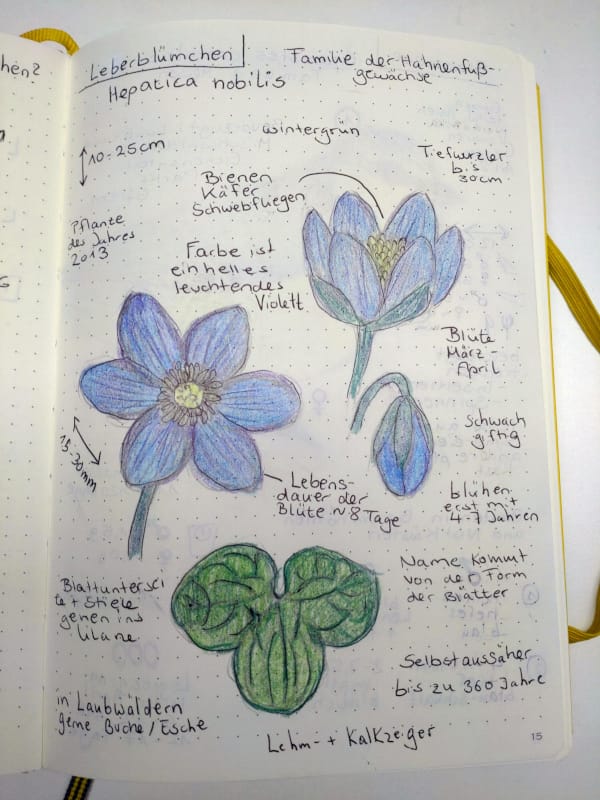 hen?
Leberblümchen
Familie der Hahnenfuß-
gewächse
Hepatica nobilis
wintergrün
10-25cm
Tiefwurzler
bis
30cm
Bienen
Käfer
Schwebfliegen
Pflanze
des Jahres
2013
Farbe ist
ein helles
leuchtendes
Violett
Blüte
März-
April
schwach
giftig
15-30mm
Lebens-
dauer der
Blüte ~ 8 Tage
blühen
erst mit
4-7 Jahren
Name kommt
von der Form
der Blätter
Blattuntersei
te + Stiele
gehen ins
lilane
Selbstaussäher
bis zu 360 Jahre
in Laubwäldern
gerne Buche/Esche
Lehm- + Kalkzeiger
15